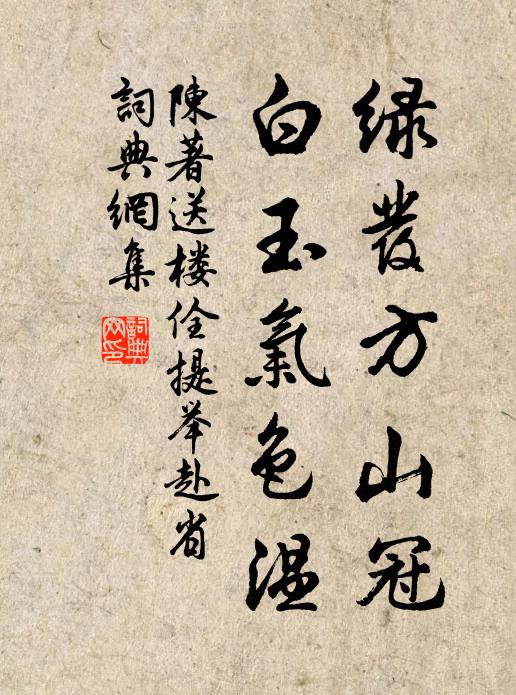 绿發方山冠
白玉氣色温
陳著送楼佺提举赴省
詞典網集
詞典网印